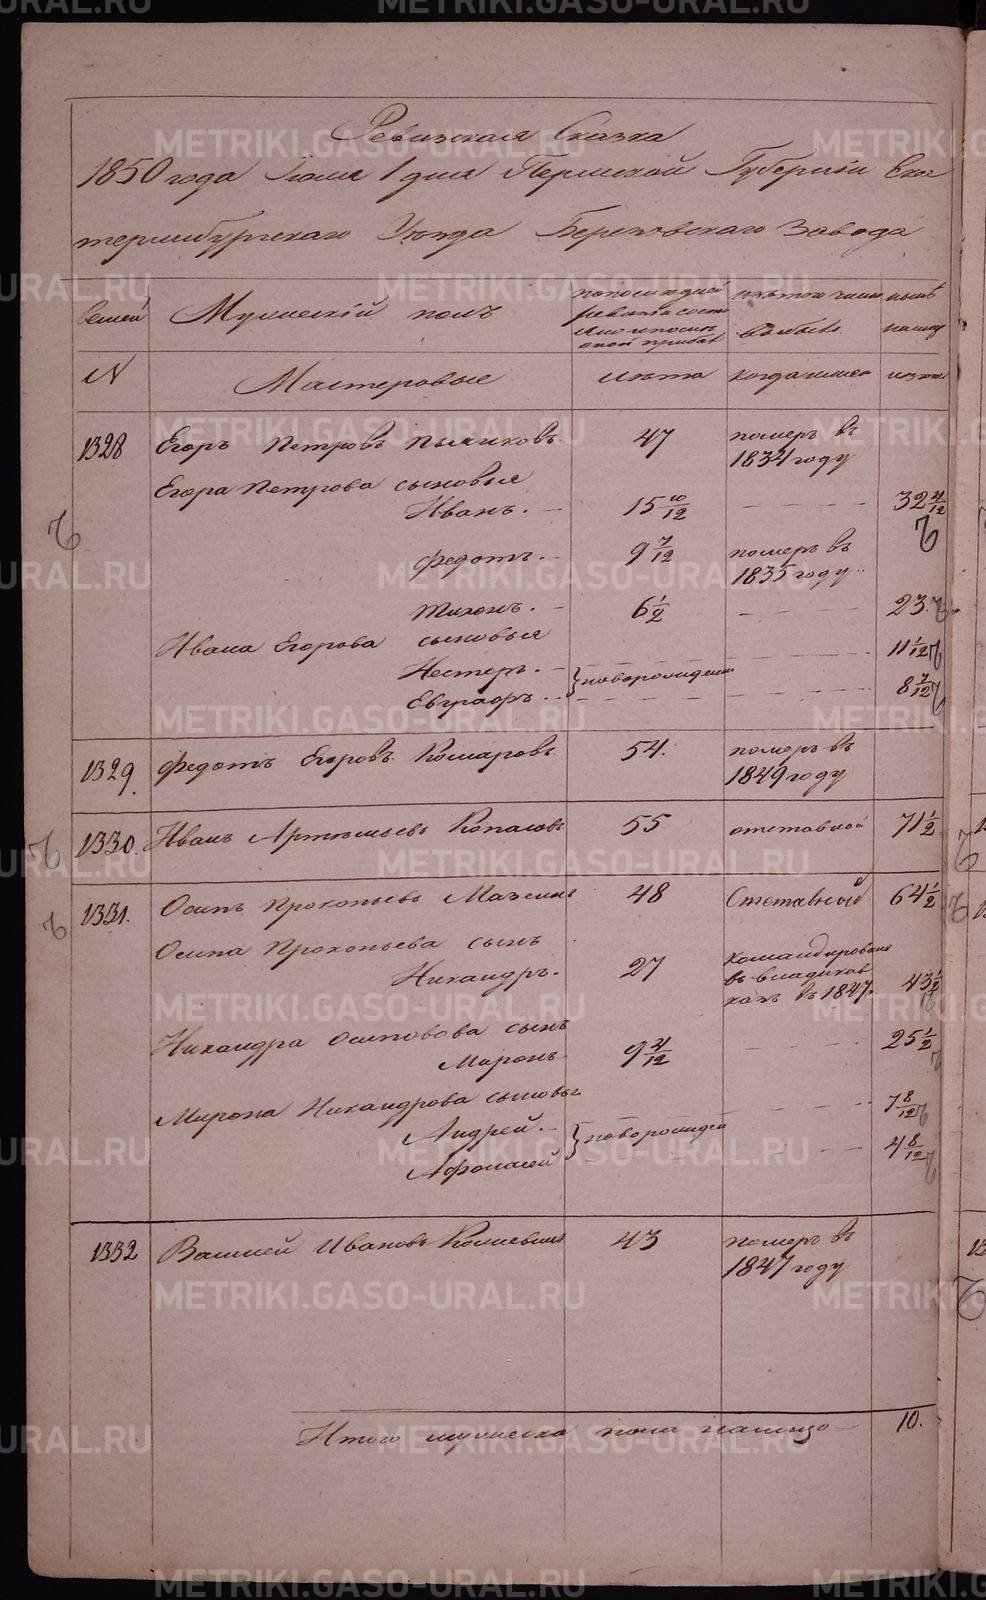 METRIKI.GASO-URAL.RU
Ревизская Сказка
1850 года Июля 1 дня Пермской Губернiи Ека
теринбургскаго Уѣзда Березовскаго Завода
Семей Мужескiй полъ по последней ревизiи состо изъ того числа нынѣ
выбыло на лицо
№ Мастеровые лѣта когда именно лѣта
1328 Егоръ Петровъ 47 померъ въ
1834 году
Егора Петрова сыновья
Иванъ. 15 10/12 32 4/12
Федотъ. 9 7/12 померъ въ
1835 году
Тихонъ. 6 1/2 23.
Ивана Егорова сыновья 11 1/12
Нестеръ. } новорожденны
Евграфъ. 8 7/12
1329. Федотъ Егоровъ Комаровъ 54. померъ въ
1849 году
1330. Иванъ Артемьевъ 55 отставной 71 1/2
1331. Осипъ Прокопьевъ 48 Отставный 64 1/2
Осипа Прокопьева сынъ
Никандръ. 27 командированъ
въ Владикав
казъ въ 1847. 43 1/2
Никандра Осиповова сынъ
Миронъ 9 4/12 25 1/2
Мирона Никандрова сыновья 7 8/12
Андрей. } новорожден
Афонасей 4 8/12
1332 Василей Ивановъ 43 померъ въ
1847 году
Итого мужеска пола налицо 10.